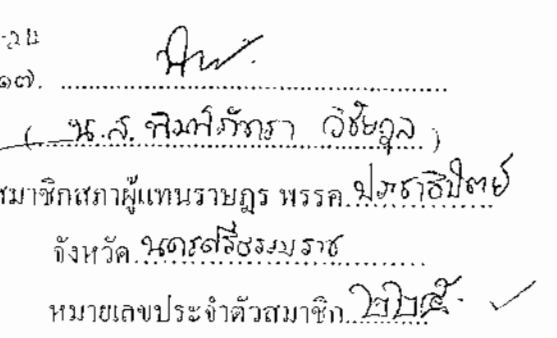 ๑๗. ........................................
( น.ส. พิมพ์ภัทรา วิชัยกุล )
สมาชิกสภาผู้แทนราษฎร พรรค ประชาธิปัตย์
จังหวัด นครศรีธรรมราช
หมายเลขประจำตัวสมาชิก ๒๒๕